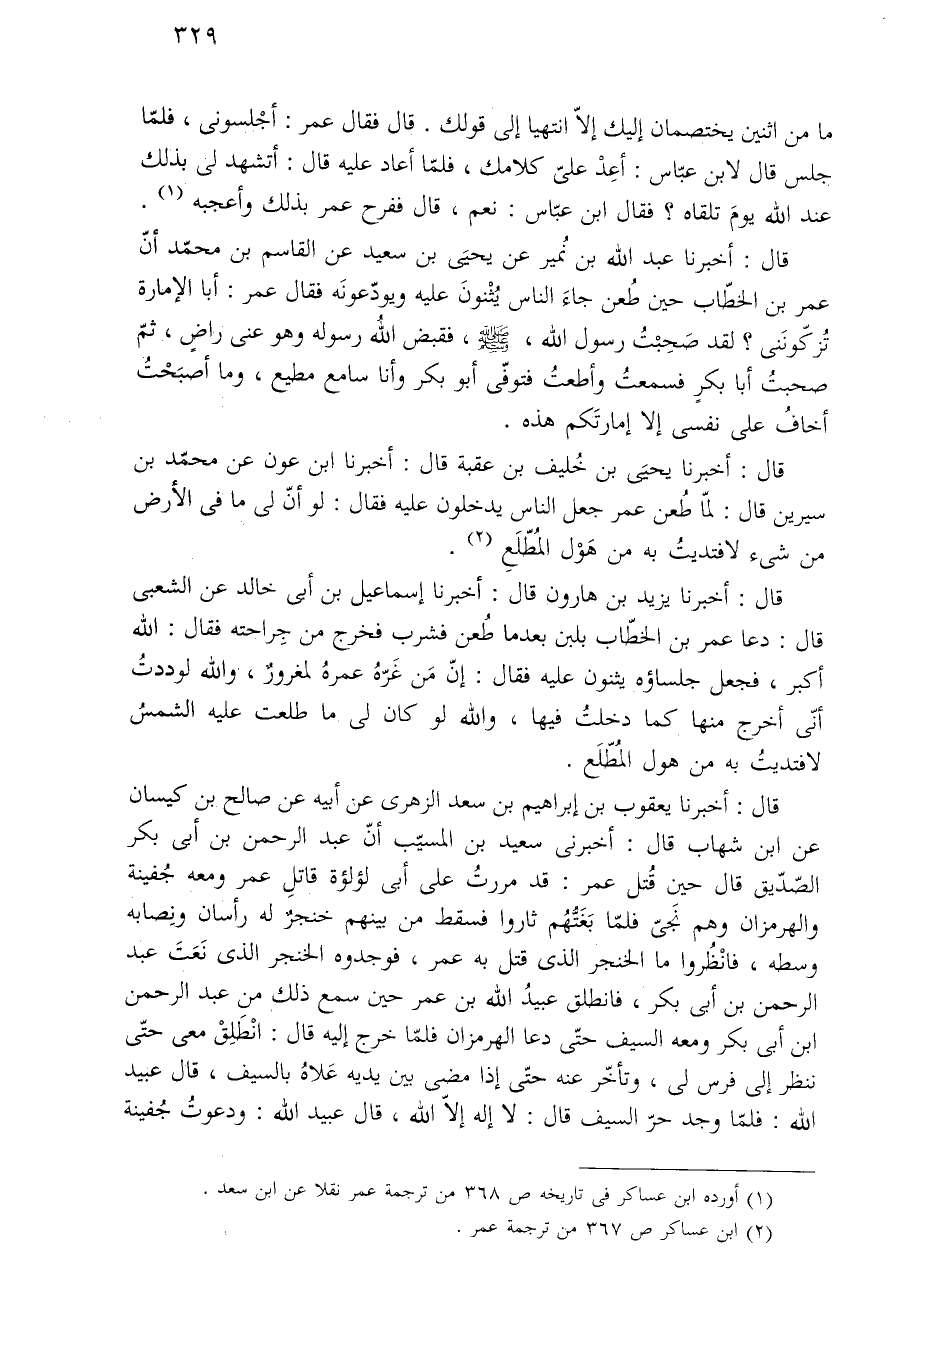 ٣٢٩
ما من اثنين يختصمان إليك إلاّ انتهيا إلى قولك . قال فقال عمر : أجْلسونى ، فلمّا
جلس قال لابن عبّاس : أعِدْ علىّ كلامك ، فلمّا أعاد عليه قال : أتشهد لى بذلك
عند الله يومَ تلقاه ؟ فقال ابن عبّاس : نعم ، قال ففرح عمر بذلك وأعجبه (١) .
قال : أخبرنا عبد الله بن نُمير عن يحيَى بن سعيد عن القاسم بن محمّد أنّ
عمر بن الخطّاب حين طُعن جاءَ الناس يُثْنونَ عليه ويودّعونَه فقال عمر : أبا الإمارة
تُزكّونَنى ؟ لقد صَحِبْتُ رسول الله ، ﷺ ، فقبض اللهُ رسوله وهو عنى راضٍ ، ثمّ
صحبتُ أبا بكرٍ فسمعتُ وأطعتُ فتوفّى أبو بكر وأنا سامع مطيع ، وما أصبَحْتُ
أخافُ على نفسى إلا إمارتَكم هذه .
قال : أخبرنا يحيَى بن خُليف بن عقبة قال : أخبرنا ابن عون عن محمّد بن
سيرين قال : لمّا طُعن عمر جعل الناس يدخلون عليه فقال : لو أنّ لى ما فى الأرض
من شىء لافتديتُ به من هَوْل المُطّلَعِ (٢) .
قال : أخبرنا يزيد بن هارون قال : أخبرنا إسماعيل بن أبى خالد عن الشعبى
قال : دعا عمر بن الخطّاب بلبن بعدما طُعن فشرب فخرج من جِراحته فقال : الله
أكبر ، فجعل جلساؤه يثنون عليه فقال : إنّ مَن غَرّهُ عمرهُ لمغرورٌ ، والله لوددتُ
أنّى أخرج منها كما دخلتُ فيها ، والله لو كان لى ما طلعت عليه الشمسُ
لافتديتُ به من هول المُطّلَع .
قال : أخبرنا يعقوب بن إبراهيم بن سعد الزهرى عن أبيه عن صالح بن كيسان
عن ابن شهاب قال : أخبرنى سعيد بن المسيّب أنّ عبد الرحمن بن أبى بكر
الصّدّيق قال حين قُتل عمر : قد مررتُ على أبى لؤلؤة قاتلِ عمر ومعه جُفينة
والهرمزان وهم نَجىّ فلمّا بَغَتُّهُم ثاروا فسقط من بينهم خنجرٌ له رأسان ونِصابه
وسطه ، فانْظُروا ما الخنجر الذى قتل به عمر ، فوجدوه الخنجر الذى نَعَتَ عبد
الرحمن بن أبى بكر ، فانطلق عبيدُ الله بن عمر حين سمع ذلك من عبد الرحمن
ابن أبى بكر ومعه السيف حتّى دعا الهرمزان فلمّا خرج إليه قال : انْطَلِقْ معى حتّى
ننظر إلى فرس لى ، وتأخّر عنه حتّى إذا مضى بين يديه عَلاهُ بالسيف ، قال عبيد
الله : فلمّا وجد حرّ السيف قال : لا إله إلاّ الله ، قال عبيد الله : ودعوتُ جُفينة
(١) أورده ابن عساكر فى تاريخه ص ٣٦٨ من ترجمة عمر نقلا عن ابن سعد .
(٢) ابن عساكر ص ٣٦٧ من ترجمة عمر .